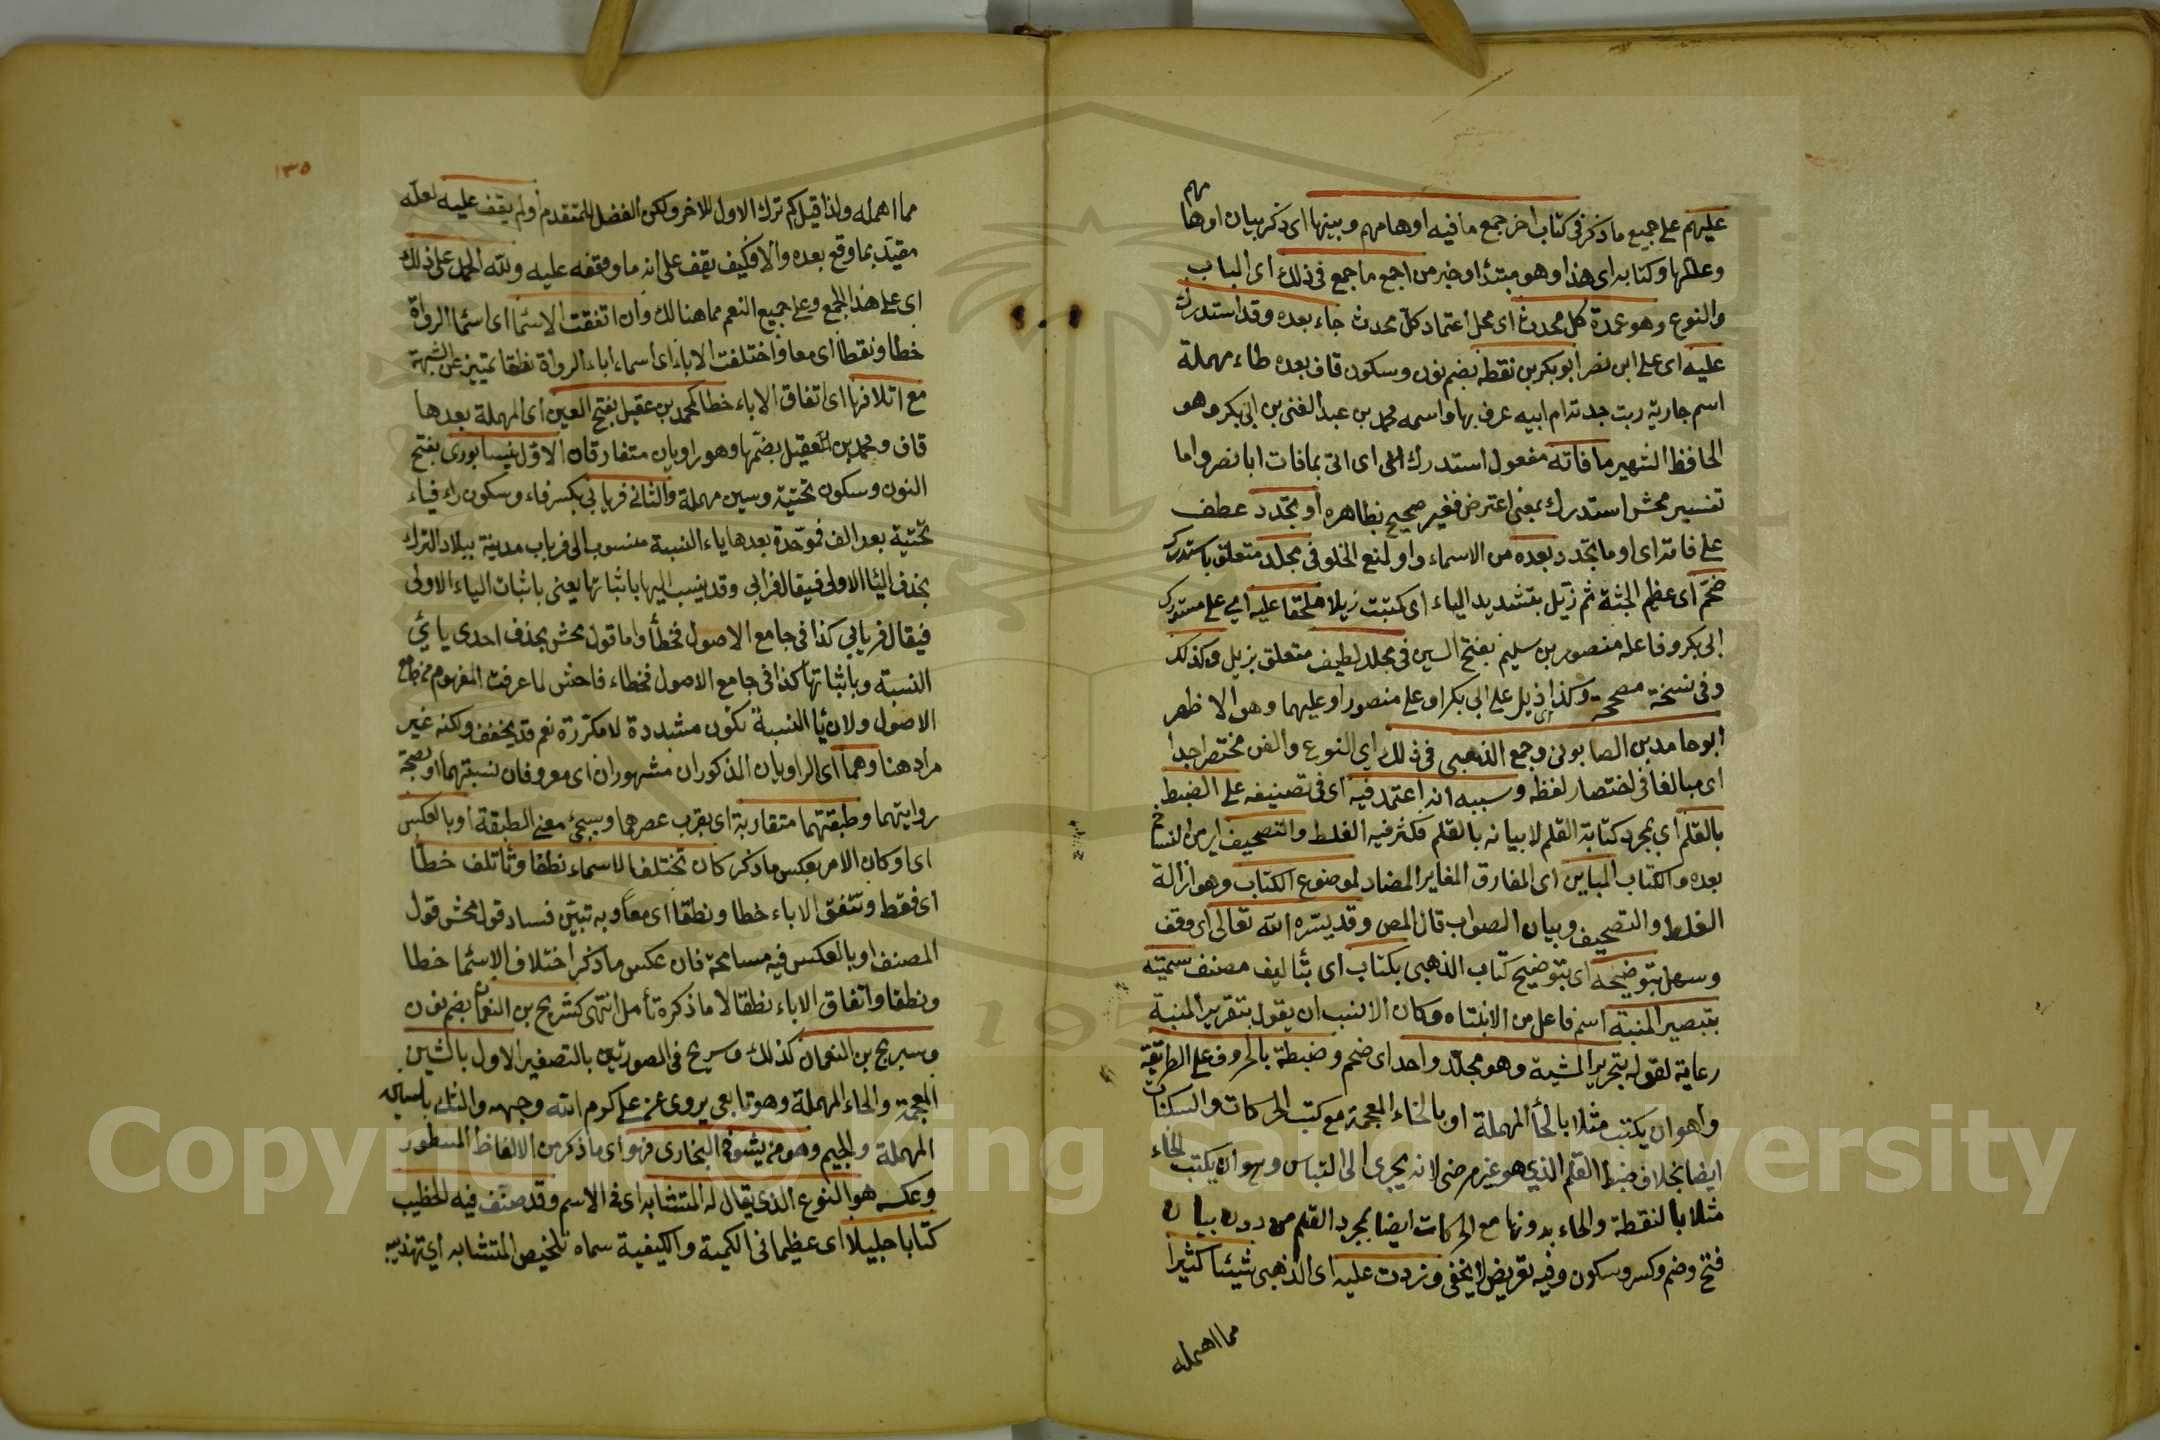 عليهم على جميع ما ذكر في كتاب اخر جمع ما فيه اوهامهم وبينها اى ذكر بيان اوها
مهم
وعللها وكتابه اى هذا وهو مبتدأ وخبر من اجمع ما جمع في ذلك اى الباب
والنوع وهو عمدة كل محدث اى محل اعتماد كل محدث جاء بعده وقد استدرك
عليه اى على ابن نصر ابو بكر بن نقطه بضم نون وسكون قاف بعده طاء مهملة
اسم جارية ربت جدته ام ابيه عرف بها واسمه محمد بن عبد الغنى بن ابى بكر وهو
الحافظ الشهير ما فاته مفعول استدرك اى اتى بما فات ابا نصر واما
تفسير محش استدرك بمعنى اعترض فغير صحيح بظاهره او تجدد عطف
على فاته اى او ما تجدد بعده من الاسماء واو لمنع الخلو في مجلد متعلق باستدرك
ضخم اى عظيم الجثة ثم ذيل بتشديد الياء اى كتبت ذيلا ملحقا عليه اى على مستدرك
ابى بكر وفاعله منصور بن سليم بفتح السين في مجلد لطيف متعلق بذيل وكذلك
وفى نسخة مصححة وكذا اى ذيل على ابى بكر او على منصور او عليهما وهو الاظهر
ابو حامد بن الصابونى وجمع الذهبى في ذلك اى النوع والفن مختصرا جدا
اى مبالغا في اختصار لفظه وسببه انه اعتمد فيه اى فى تصنيفه على الضبط
بالقلم اى بمجرد كتابة القلم لا بيانه بالقلم فكثر فيه الغلط والتصحيف اى من النساخ
بعده والكتاب المباين اى المفارق المغاير المضاد لموضوع الكتاب وهو ازالة
الغلط والتصحيف وبيان الصواب قال المص وقد يسره الله تعالى اى وفق
وسهل بتوضيحه اى بتوضيح كتاب الذهبى بكتاب اى بتأليف مصنف سميته
بتبصير المنتبه اسم فاعل من الانتباه وكان الانسب ان يقول بتقرير المنبة
رعاية لقوله بتحرير المشبه وهو مجلد واحد اى ضخم وضبطه بالحروف على الطريقة
واهو ان يكتب مثلا بالحأ المهملة او بالخاء المعجمة مع كتب الحركات والسكنات
ايضا بخلاف ضبط القلم الذي هو غير مرضى لانه يجرى الى التباس وهو ان يكتب الخاء
مثلا بالنقطة والحاء بدونها مع الحركات ايضا بمجرد القلم من دون بيان
فتح وضم وكسر وسكون وفيه تعريض لا يخفى وزدت عليه اى الذهبى شيئا كثيرا
مما اهمله
١٣٥
مما اهمله ولذا قيل كم ترك الاول للاخر ولكن الفضل للمتقدم او لم يقف عليه لعله
مقيد بما وقع بعده والا فكيف يقف على انه ما وقفه عليه ولله الحمد على ذلك
اى على هذا الجمع وعلى جميع النعم مما هنالك وان اتفقت الاسمأ اى اسمأ الرواة
خطا ونقطا اى معا واختلفت الاباء اى اسماء اباء الرواة نطقا تمييز عن الشبهة
مع ائتلافها اى اتفاق الاباء خطا كمحمد بن عقيل بفتح العين اى المهملة بعدها
قاف ومحمد بن عقيل بضمها وهو راويان متفارقان الاول نيسابورى بفتح
النون وسكون تحتية وسين مهملة والثانى فريابى بكسر فاء وسكون راء فياء
تحتية بعد الف فموحدة بعدها ياء النسبة منسوب الى فرياب مدينة ببلاد الترك
بحذف اليأ الاولى فيقال فرابى وقد ينسب اليها باثباتها يعنى باثبات الياء الاولى
فيقال فريابى كذا فى جامع الاصول فخطأ واما قول محش بحذف احدى يائي
النسبة وباثباتها كذا فى جامع الاصول فخطاء فاحش لما عرفت المفهوم من جامع
الاصول ولان يأ النسبة تكون مشددة لا مكررة نعم قد يخفف ولكنه غير
مراد هنا وهما اى الراويان المذكوران مشهوران اى معروفان نسبتهما او بصحة
روايتهما وطبقتهما متقاربة اى بقرب عصرهما وسيجئ معنى الطبقة او بالعكس
اى او كان الامر بعكس ما ذكر كان تختلف الاسماء نطقا وتأتلف خطا
اى فقط وتتفق الاباء خطا ونطقا اى معا وبه تبين فساد قول محش قول
المصنف او بالعكس فيه مسامحة فان عكس ما ذكر اختلاف الاسمأ خطا
ونطقا واتفاق الاباء نطقا لا ما ذكره تأمل انتهى كشريح بن النعمان بضم نون
وسريج بن النعمان كذلك وسريج فى الصورتين بالتصغير الاول بالشين
المعجمة والحاء المهملة وهو تابعى يروى عن على كرم الله وجهه والثانى بالسين
المهملة والجيم وهو من شيوخ البخارى فهو اى ما ذكر من الالفاظ المسطور
وعكسه هو النوع الذى يقال له المتشابه اى فى الاسم وقد صنف فيه الخطيب
كتابا جليلا اى عظيما فى الكمية والكيفية سماه تلخيص المتشابه اى تهذيبه
Copyright © King Saud University
195